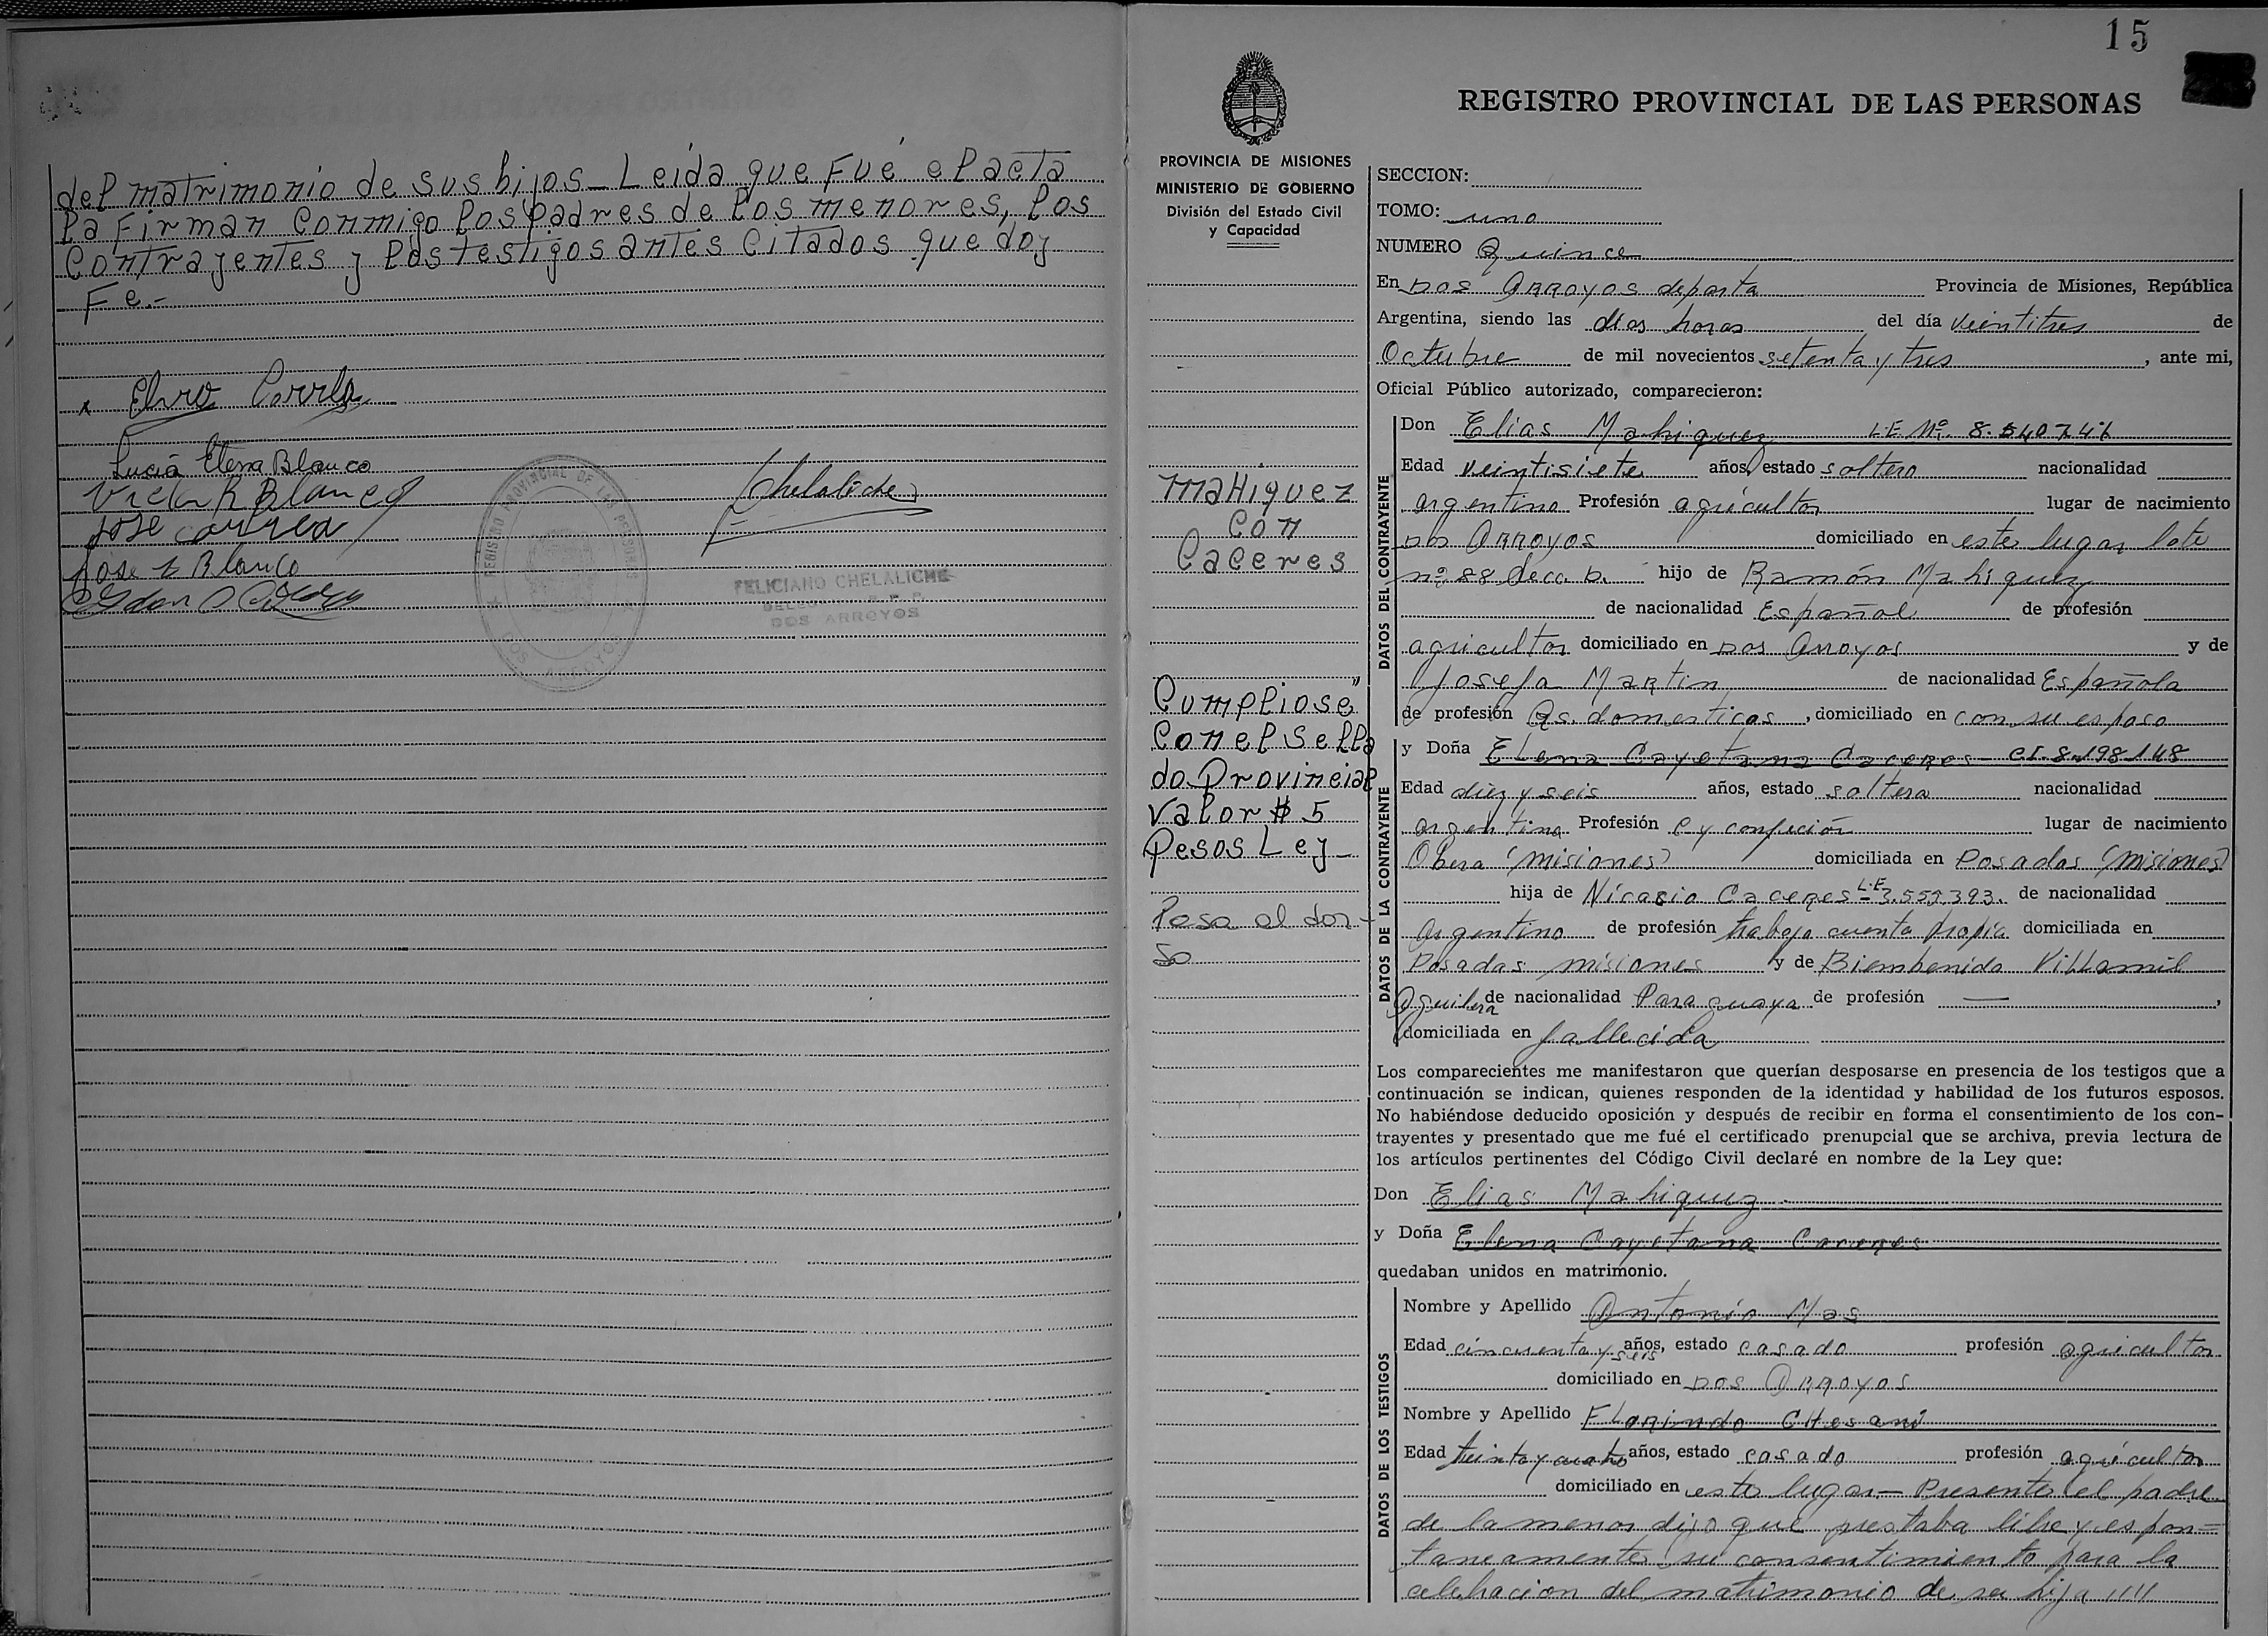 del matrimonio de sus hijos_ Leida que Fué el acta
la Firman Conmigo los padres de los menores, los
Contrayentes y los testigos antes Citados que doy
Fe.-
x Elvio Correa
Lucia Elena Blanco
Victor R Blanco
Jose Correa
Jose Blanco
Chelaliche
REGISTRO PROVINCIAL DE LAS PERSONAS
DOS ARROYOS
FELICIANO CHELALICHE
DOS ARROYOS
15
REGISTRO PROVINCIAL DE LAS PERSONAS
PROVINCIA DE MISIONES
MINISTERIO DE GOBIERNO
División del Estado Civil
y Capacidad
maHiquez
Con
Caceres
Cumpliose"
Con el Sella
do Provincial
Valor $ 5
Pesos Ley_
Pasa al dor-
so
SECCION:
TOMO: uno
NUMERO Quince
En Dos Arroyos departa Provincia de Misiones, República
Argentina, siendo las dies horas del día veintitres de
Octubre de mil novecientos setenta y tres, ante mi,
Oficial Público autorizado, comparecieron:
DATOS DEL CONTRAYENTE
Don Elias Mahiquez L.E. Nº. 8.540.741
Edad veintisiete años, estado soltero nacionalidad
argentino Profesión agricultor lugar de nacimiento
Dos Arroyos domiciliado en este lugar lote
nº 88 Secc. B. hijo de Ramón Mahiquez
de nacionalidad Español de profesión
agricultor domiciliado en Dos Arroyos y de
Josefa Martin de nacionalidad Española
de profesión Qs. domesticos, domiciliado en con su esposo
DATOS DE LA CONTRAYENTE
y Doña Elena Cayetana Caceres - CI. 8.198.148
Edad diez y seis años, estado soltera nacionalidad
argentina Profesión C y confeción lugar de nacimiento
Obera (misiones) domiciliada en Posadas (misiones)
hija de Nicasio Caceres L.E. 3.557.393. de nacionalidad
Argentino de profesión trabajo cuenta propia domiciliada en
Posadas misiones y de Biembenida Villamil
Aguilera de nacionalidad Paraguaya de profesión —,
domiciliada en fallecida
Los comparecientes me manifestaron que querían desposarse en presencia de los testigos que a
continuación se indican, quienes responden de la identidad y habilidad de los futuros esposos.
No habiéndose deducido oposición y después de recibir en forma el consentimiento de los con-
trayentes y presentado que me fué el certificado prenupcial que se archiva, previa lectura de
los artículos pertinentes del Código Civil declaré en nombre de la Ley que:
Don Elias Mahiquez
y Doña Elena Cayetana Caceres
quedaban unidos en matrimonio.
DATOS DE LOS TESTIGOS
Nombre y Apellido Antonio Mas
Edad cincuenta y seis años, estado casado profesión agricultor
domiciliado en Dos Arroyos
Nombre y Apellido Florindo CHesani
Edad treinta y cuatro años, estado casado profesión agricultor
domiciliado en este lugar.- Presente el padre
de la menor dijo que prestaba libre y espon-
taneamente su consentimiento para la
celebracion del matrimonio de su hija ////